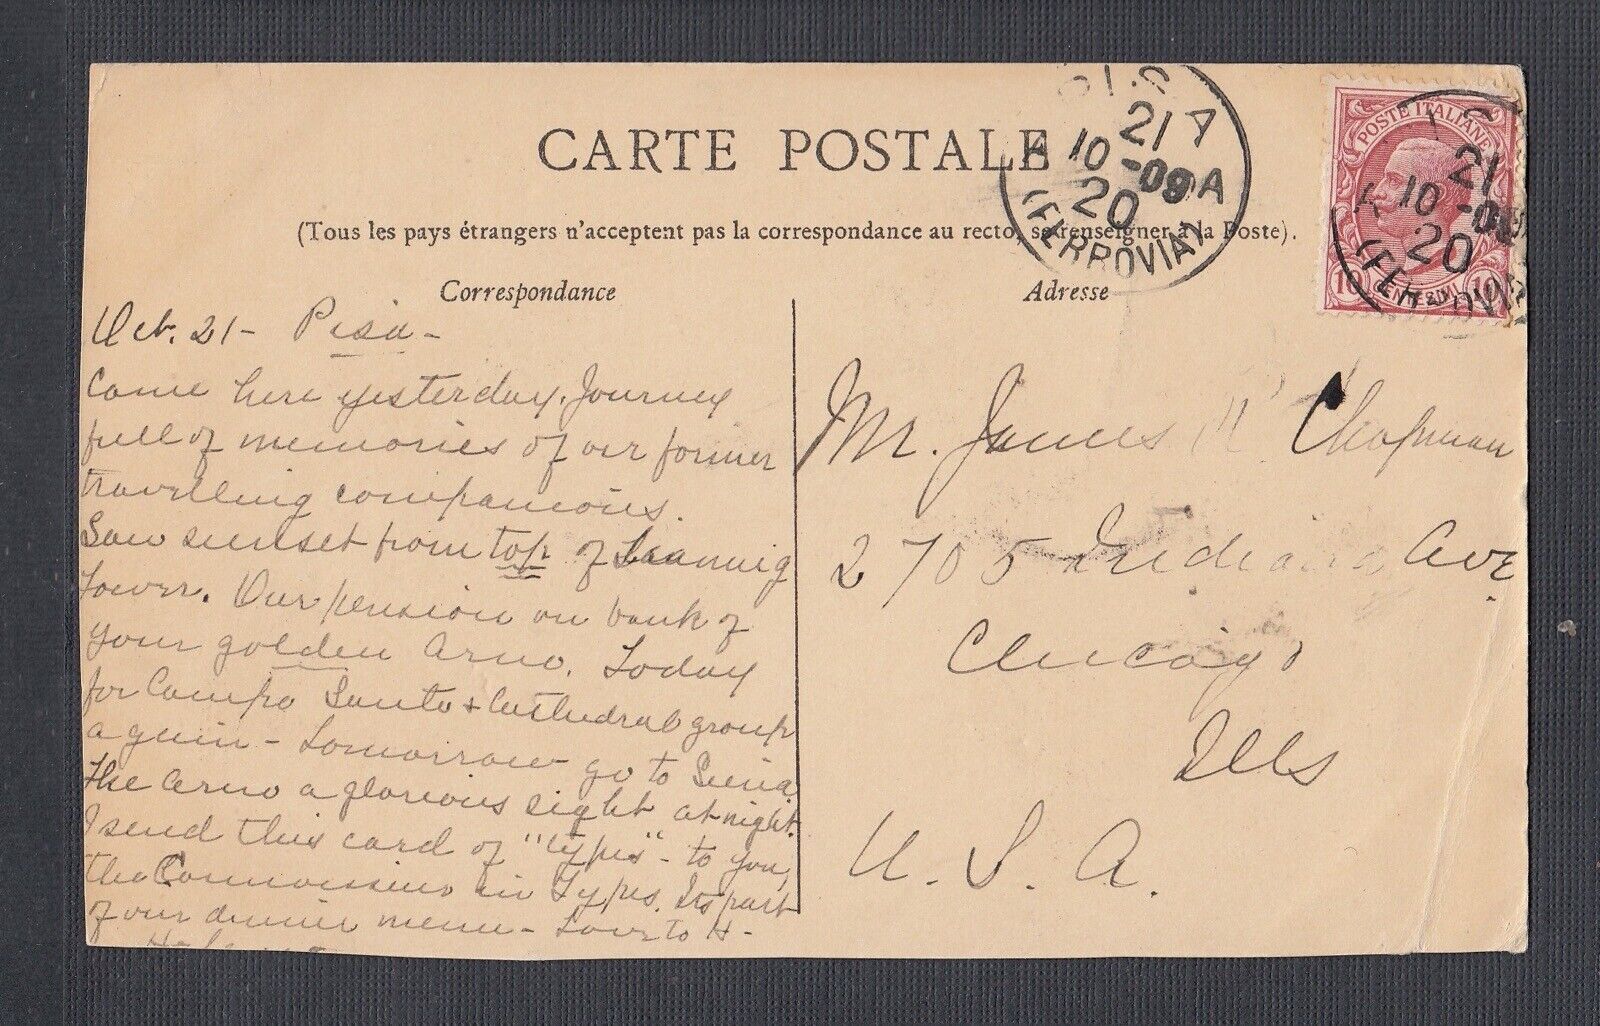 CARTE POSTALE
(Tous les pays étrangers n'acceptent pas la correspondance au recto, se renseigner à la Poste).
Correspondance
Adresse
PISA
21 A
10 - 09 A
20
(FERROVIA)
POSTE ITALIANE
21
10 - 09
20
10 CENTESIMI 10
Oct. 21 - Pisa -
Came here yesterday. Journey
full of memories of our former
travelling companions.
Saw sunset from top of Leaning
Tower. Our pension on bank of
your golden Arno. Today
for Campo Santo & Cathedral group
again - Tomorrow go to Siena.
The Arno a glorious sight at night.
I send this card of "types" - to you,
the Connoisseur in Types. Its part
of our dinner menu - Love to H -
Mr. James H Chapman
2705 Indiana Ave.
Chicago
Ills
U. S. A.